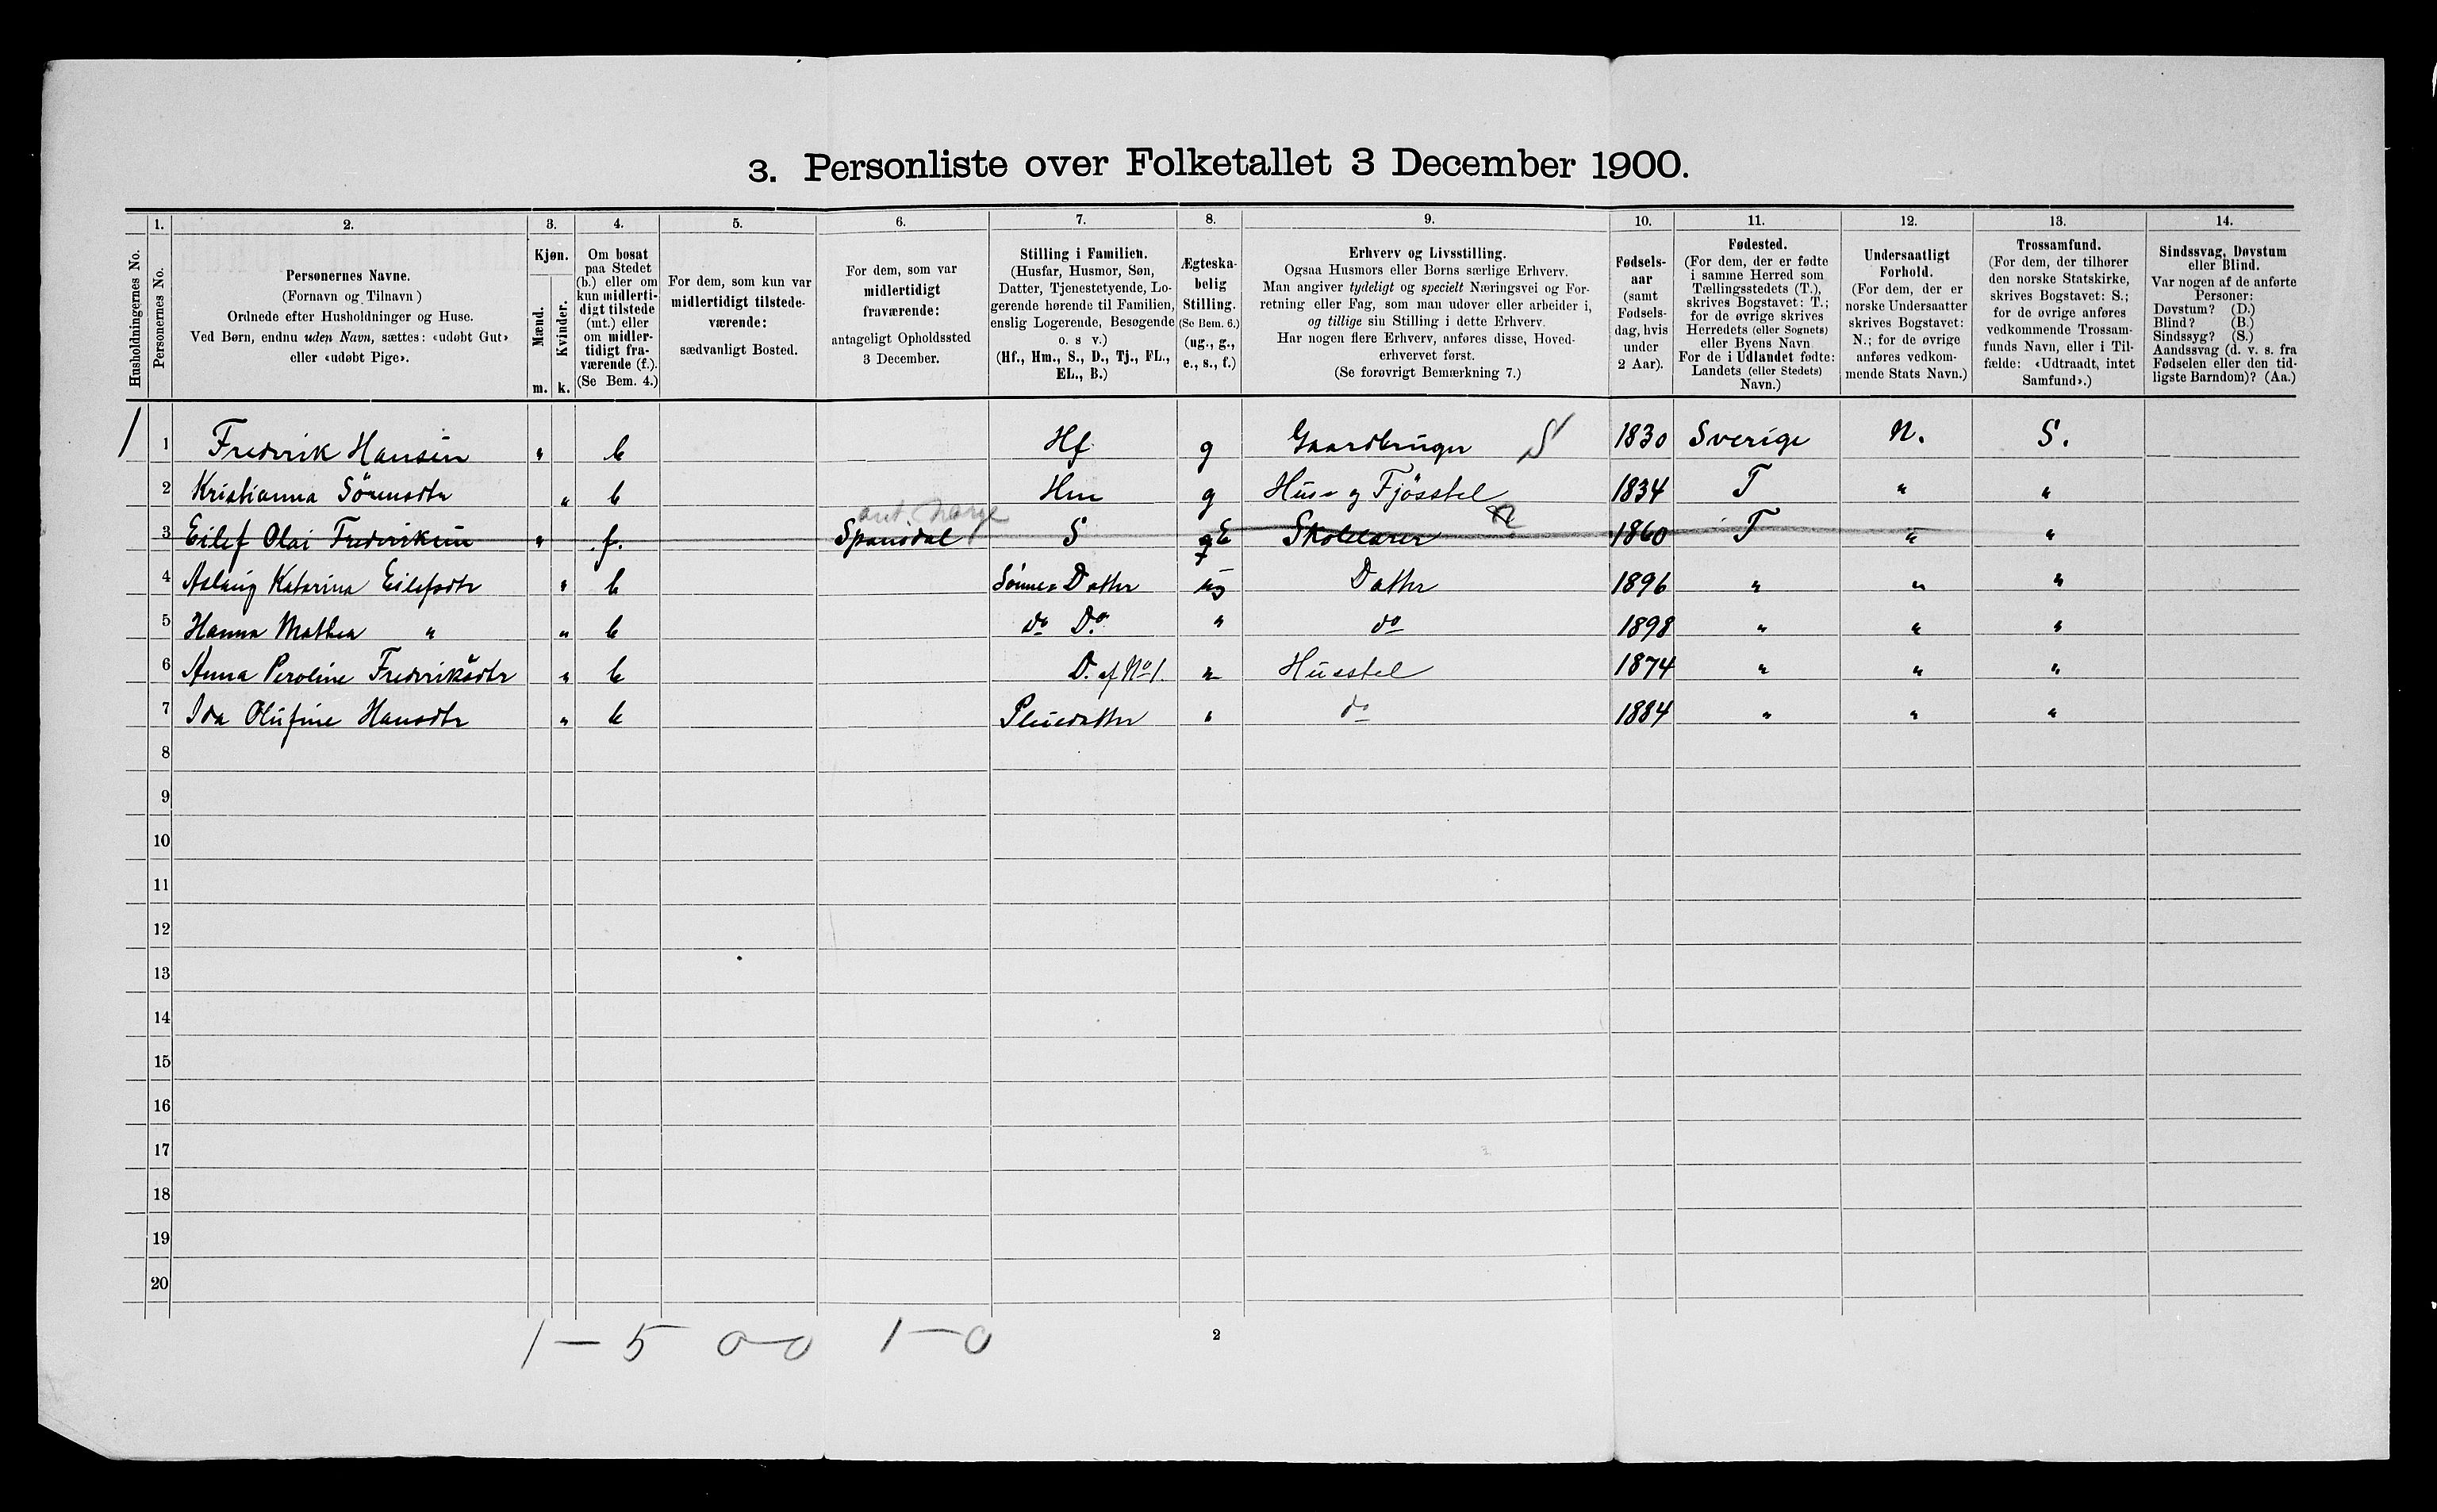 3. Personliste over Folketallet 3 December 1900.
1. 2. 3. 4. 5. 6. 7. 8. 9. 10. 11. 12. 13. 14.
Husholdningernes No.
Personernes No.
Personernes Navne.
(Fornavn og Tilnavn)
Ordnede efter Husholdninger og Huse.
Ved Børn, endnu uden Navn, sættes: «udøbt Gut»
eller «udøbt Pige».
Kjøn.
Mænd.
Kvinder.
m. k.
Om bosat
paa Stedet
(b.) eller om
kun midlerti-
digt tilstede
(mt.) eller
om midler-
tidigt fra-
værende (f.).
(Se Bem. 4.)
For dem, som kun var
midlertidigt tilstede-
værende:
sædvanligt Bosted.
For dem, som var
midlertidigt
fraværende:
antageligt Opholdssted
3 December.
Stilling i Familien.
(Husfar, Husmor, Søn,
Datter, Tjenestetyende, Lo-
gerende hørende til Familien,
enslig Logerende, Besøgende
o. s v.)
(Hf., Hm., S., D., Tj., FL.,
EL., B.)
Ægteska-
belig
Stilling.
(Se Bem. 6.)
(ug., g.,
e., s., f.)
Erhverv og Livsstilling.
Ogsaa Husmors eller Børns særlige Erhverv.
Man angiver tydeligt og specielt Næringsvei og For-
retning eller Fag, som man udøver eller arbeider i,
og tillige sin Stilling i dette Erhverv.
Har nogen flere Erhverv, anføres disse, Hoved-
erhvervet først.
(Se forøvrigt Bemærkning 7.)
Fødsels-
aar
(samt
Fødsels-
dag, hvis
under
2 Aar).
Fødested.
(For dem, der er fødte
i samme Herred som
Tællingsstedets (T.),
skrives Bogstavet: T.;
for de øvrige skrives
Herredets (eller Sognets)
eller Byens Navn
For de i Udlandet fødte:
Landets (eller Stedets)
Navn.)
Undersaatligt
Forhold.
(For dem, der er
norske Undersaatter
skrives Bogstavet:
N.; for de øvrige
anføres vedkom-
mende Stats Navn.)
Trossamfund.
(For dem, der tilhører
den norske Statskirke,
skrives Bogstavet: S.;
for de øvrige anføres
vedkommende Trossam-
funds Navn, eller i Til-
fælde: «Udtraadt, intet
Samfund».)
Sindssvag, Døvstum
eller Blind.
Var nogen af de anførte
Personer:
Døvstum? (D.)
Blind? (B.)
Sindssyg? (S.)
Aandssvag (d. v. s. fra
Fødselen eller den tid-
ligste Barndom)? (Aa.)
1 1 Fredrik Hansen " b Hf g Gaardbruger S 1830 Sverige N. S.
2 Kristianna Sörensdtr " b Hm g Hus- og Fjösstel 1834 T " "
3 Eilef Olai Fredriksen " f. Spansdal S E Skolelærer 1860 T " "
4 Aslaug Katarina Eilefsdtr " b Sönne-Datter ug Datter 1896 " " "
5 Hanna Mathea " " b do Do " do 1898 " " "
6 Anna Peroline Fredriksdtr " b D. af No 1. " Husstel 1874 " " "
7 Ida Olufine Hansdtr " b Pleiedatter " do 1884 " " "
8
9
10
11
12
13
14
15
16
17
18
19
20
1 — 5 0—0 1—0
2